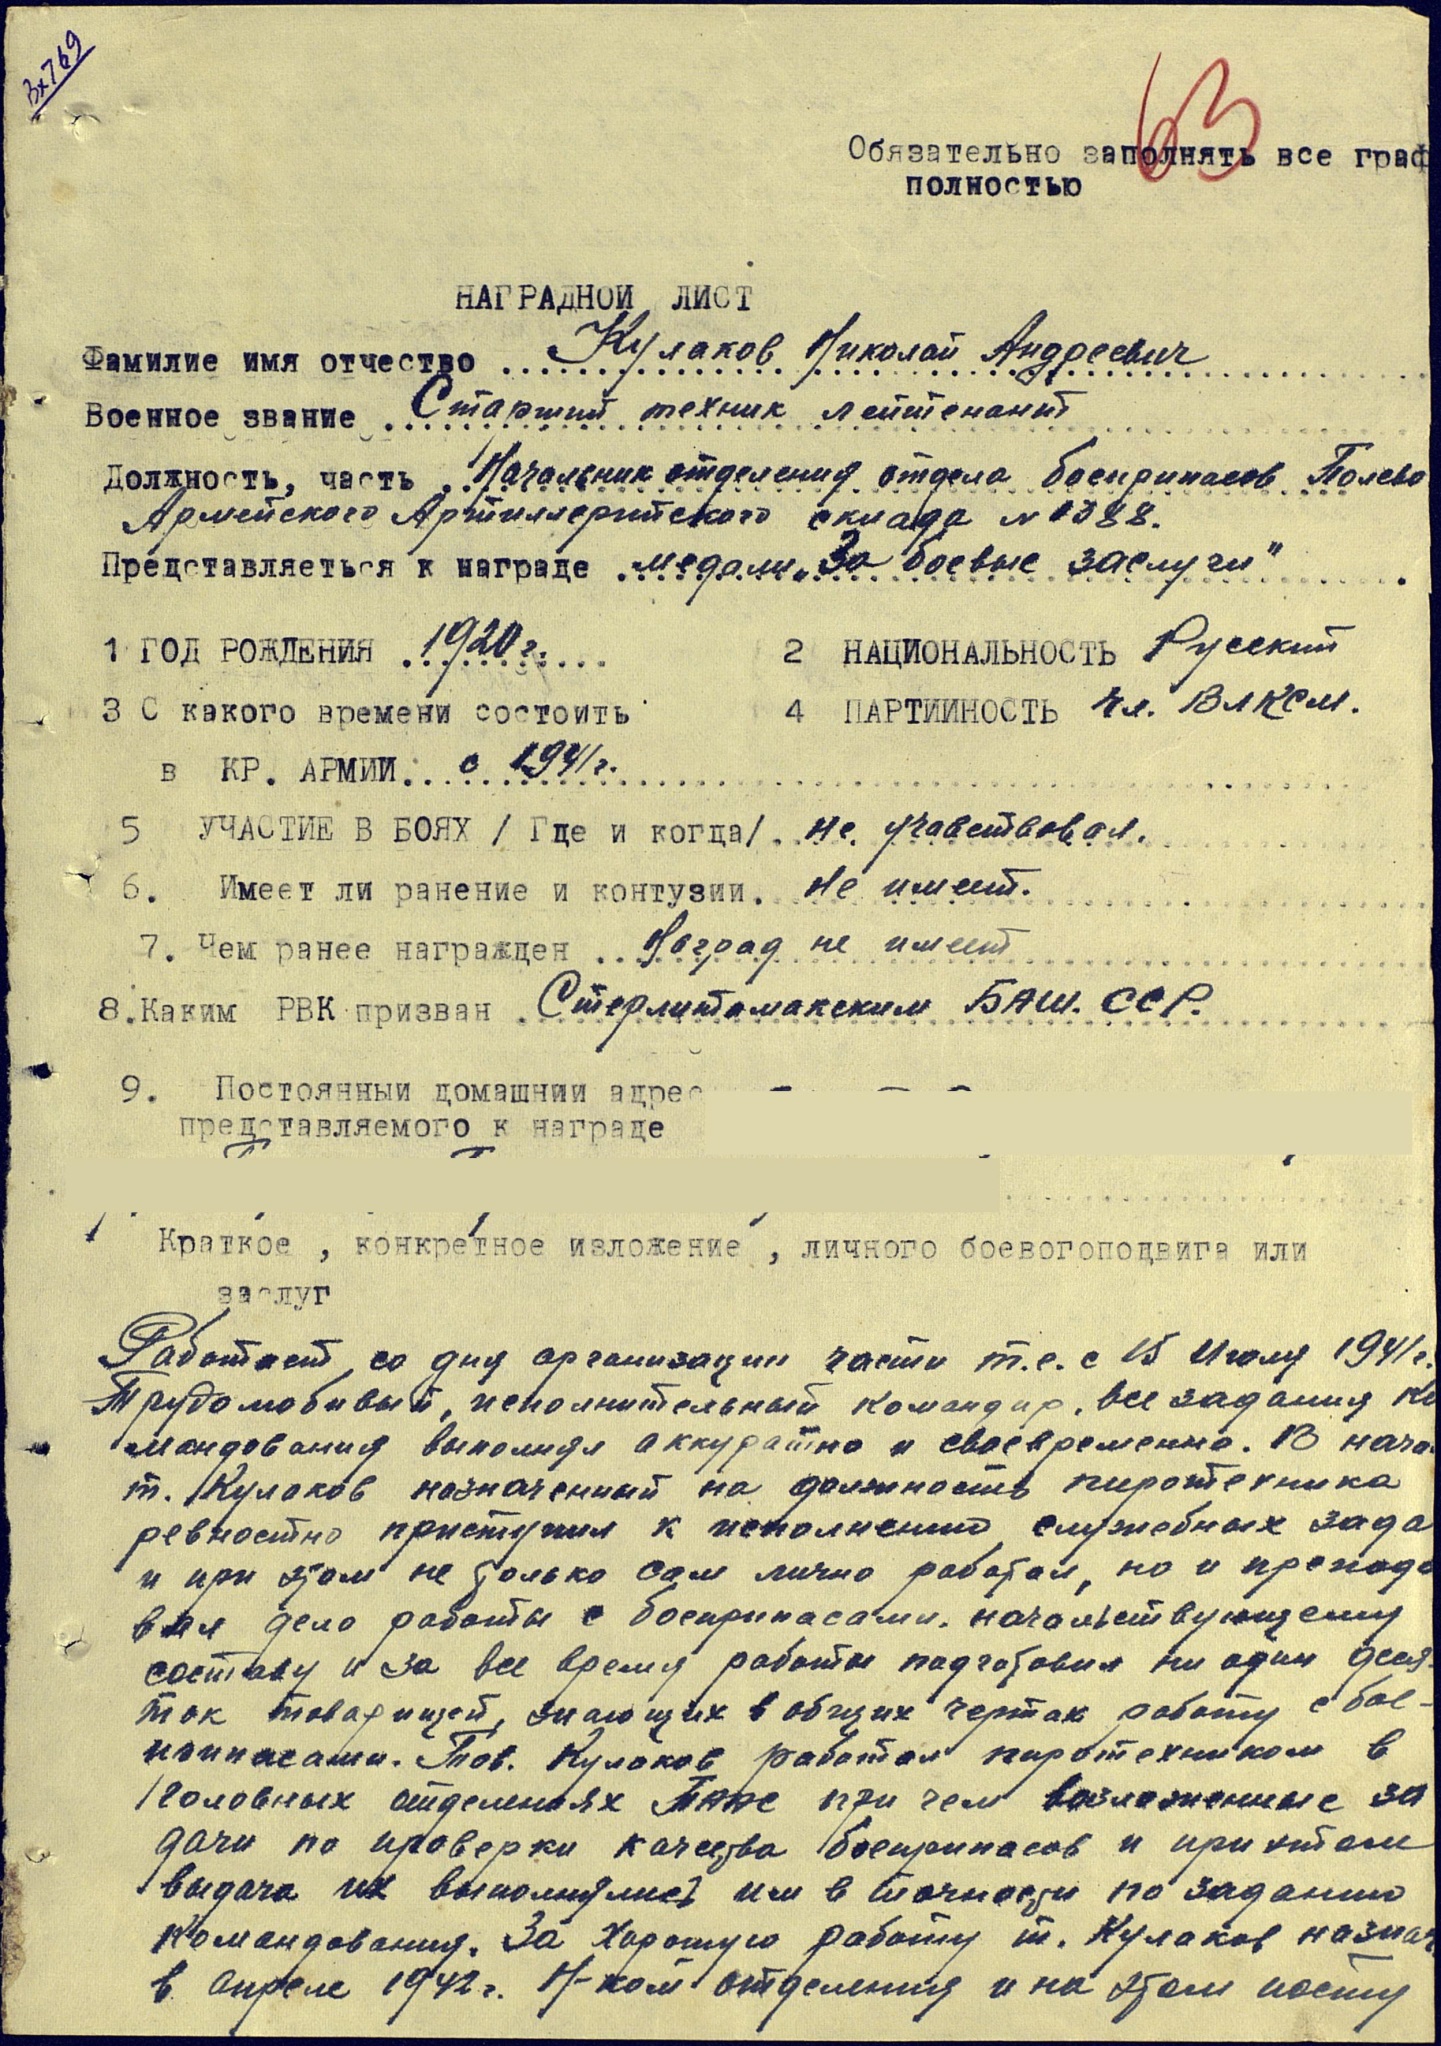 Вх769
63
Обязательно заполнять все граф
полностью
НАГРАДНОИ ЛИСТ
Фамилие имя отчество Кулаков Николай Андреевич
Военное звание Старший техник лейтенант
Должность, часть Начальник отделения отдела боеприпасов Полево
Армейского Артиллерийского склада № 1388.
Представляеться к награде медали „За боевые заслуги"
1 ГОД РОЖДЕНИЯ 1920 г. 2 НАЦИОНАЛЬНОСТЬ Русский
3 С какого времени состоить 4 ПАРТИИНОСТЬ чл. ВЛКСМ.
в КР. АРМИИ. с 1941 г.
5 УЧАСТИЕ В БОЯХ / Где и когда/. не учавствовал.
6. Имеет ли ранение и контузии. Не имеет.
7. Чем ранее награжден Наград не имеет
8. Каким РВК призван Стерлитамакским БАШ. ССР.
9. Постоянныи домашнии адрес
представляемого к награде
Краткое , конкретное изложение , личного боевогоподвига или
заслуг
Работает со дня организации части т.е. с 15 Июля 1941 г.
Трудолюбивый, исполнительный командир, все задания ко
мандования выполнял аккуратно и своевременно. В нача
т. Кулаков назначенный на должность пиротехника
ревностно приступил к исполнению служебных зада
и при этом не только сам лично работал, но и препода
вал дело работы с боеприпасами. начальствующему
составу и за все время работы подготовил ни один деся-
ток товарищей, знающих в общих чертах работу с бое-
припасами. Тов. Кулаков работал пиротехником в
головных отделениях ПААС при чем возложенные за
дачи по проверки качества боеприпасов и при этом
выдача их выполнялись им в точности по заданию
Командования. За хорошую работу т. Кулаков назнач
в апреле 1942 г. Н-ком отделения и на этом посту